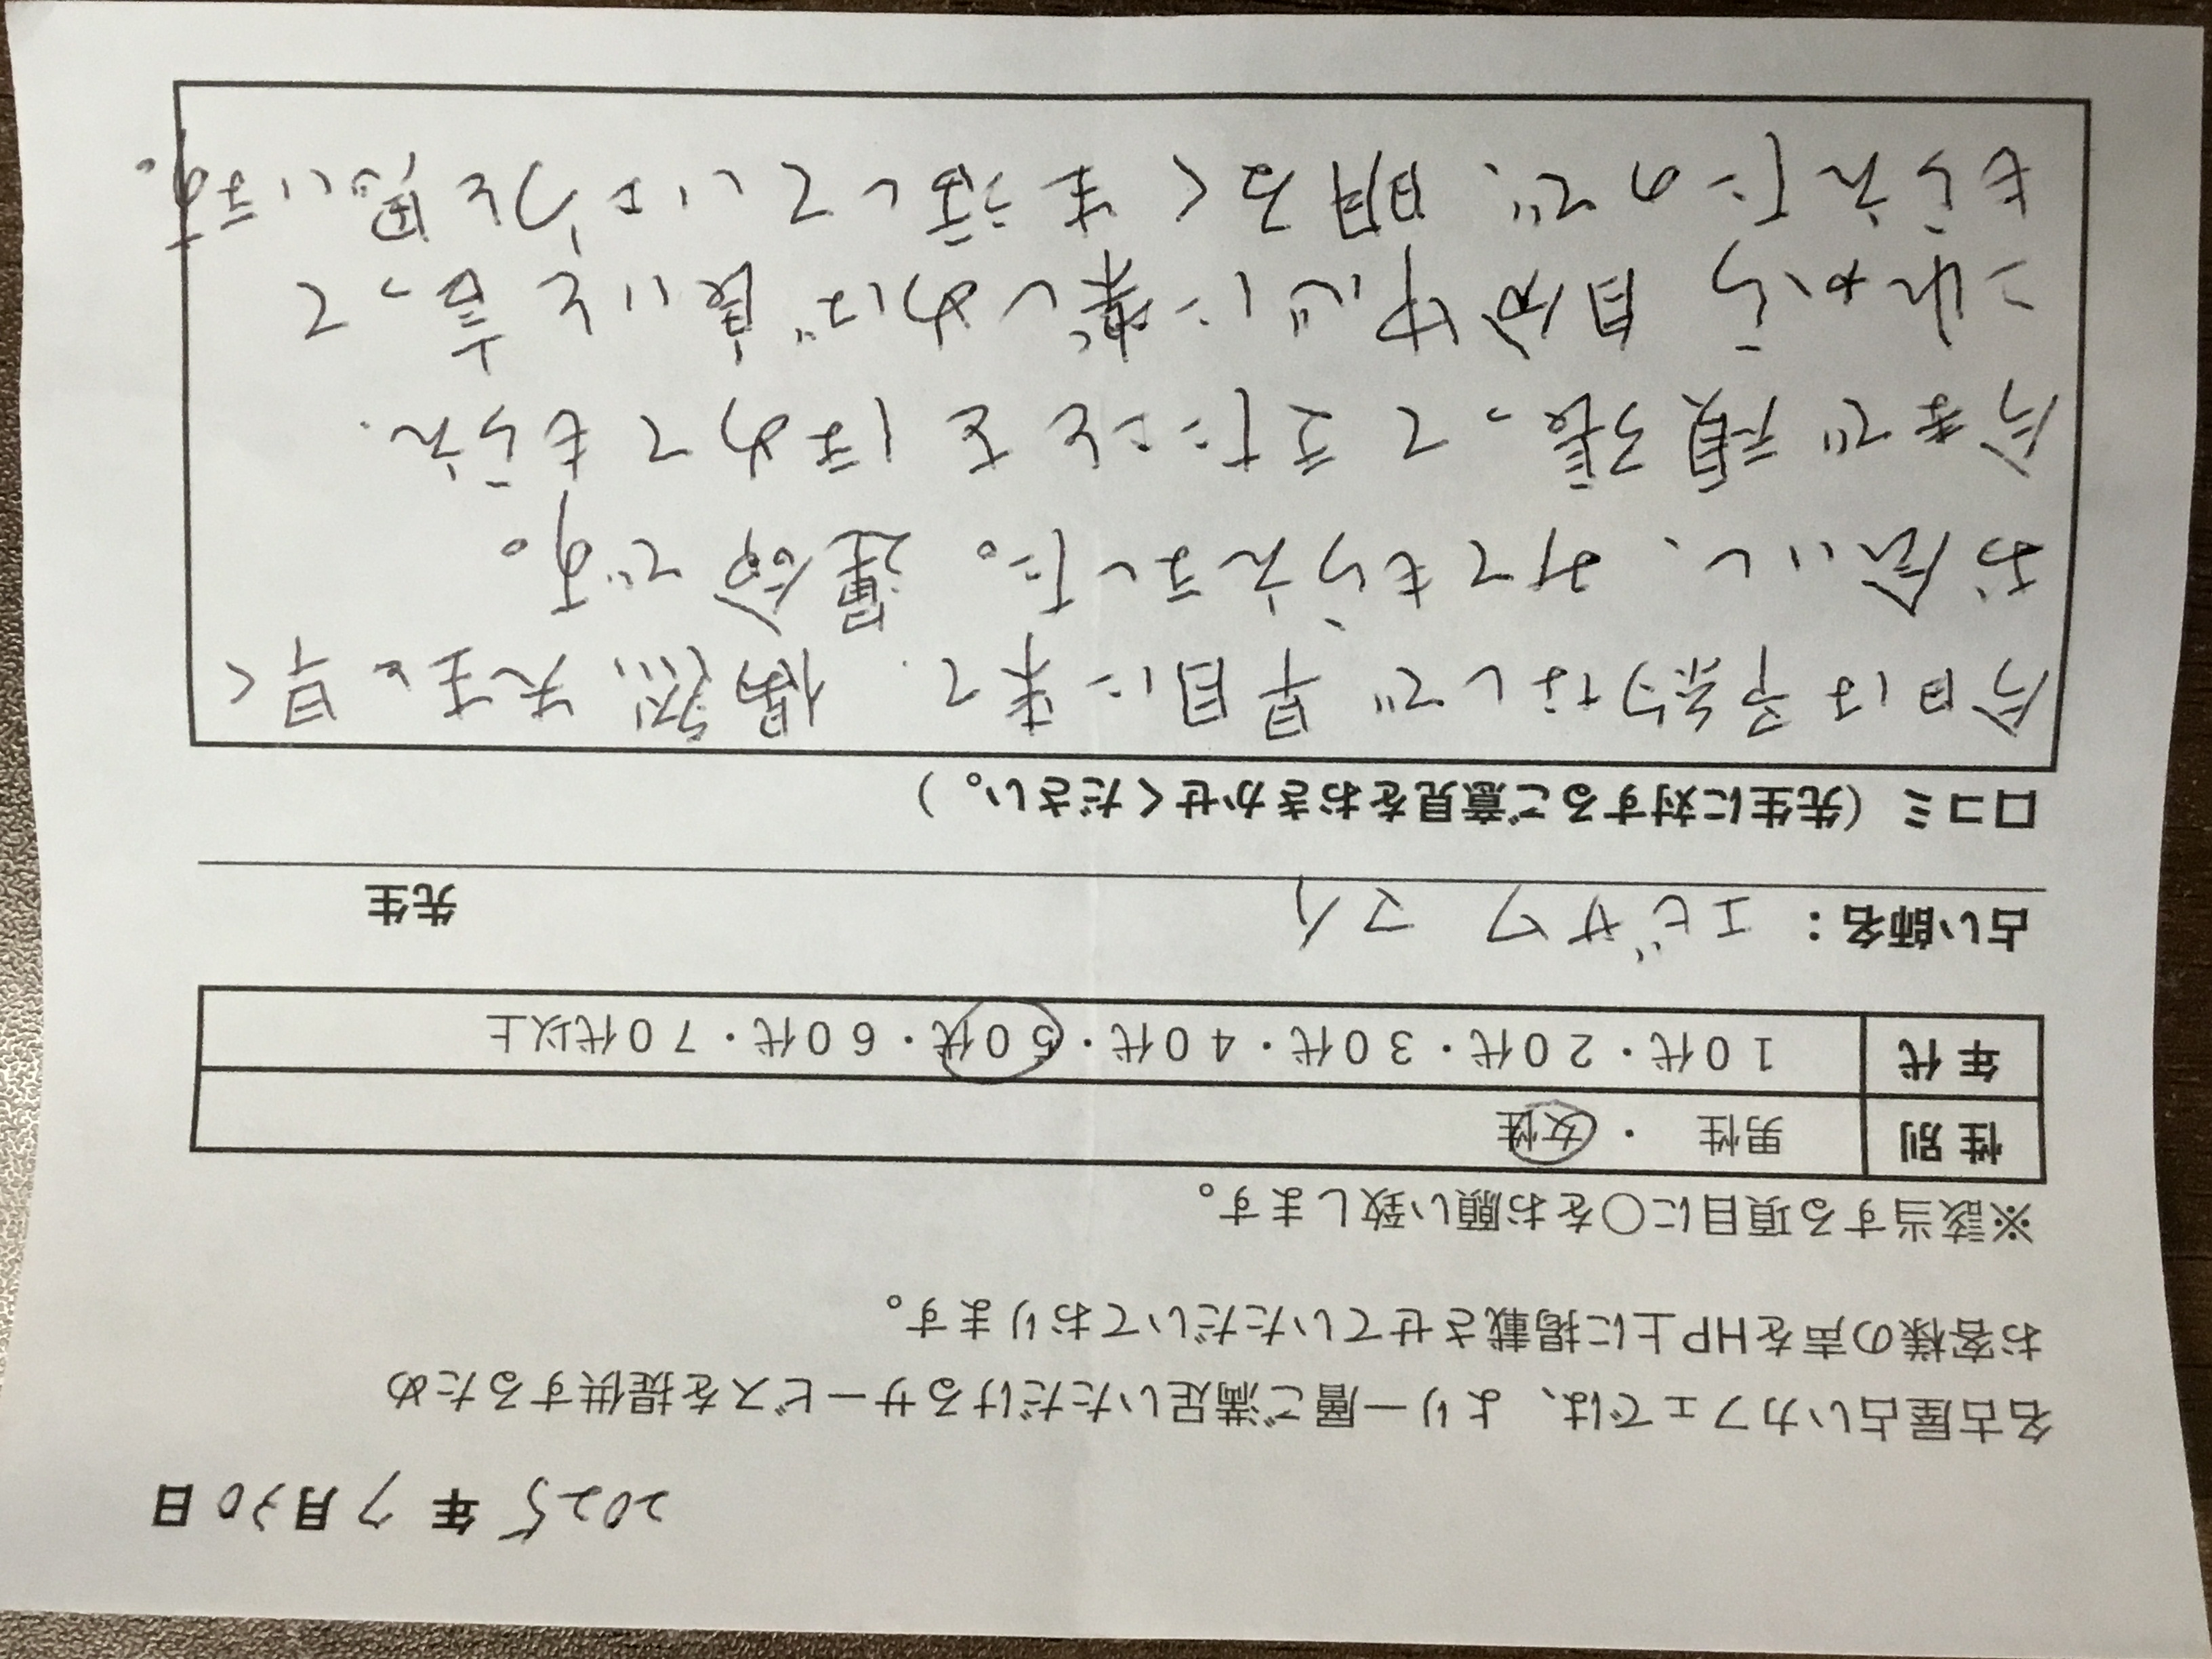 2025年7月30日
名古屋占いカフェでは、より一層ご満足いただけるサービスを提供するため
お客様の声をHP上に掲載させていただいております。
※該当する項目に○をお願い致します。
性別 男性 ・ 女性
年代 10代・20代・30代・40代・50代・60代・70代以上
占い師名: エビサワ マイ 先生
口コミ (先生に対するご意見をおきかせください。)
今日は予約なしで早目に来て、偶然、先生と早く
お会いし、みてもらえました。運命です。
今まで頑張ってきたことをほめてもらえ、
これから自分中心に楽しめば良いと言って
もらえたので、明るく生活していこうと思います。